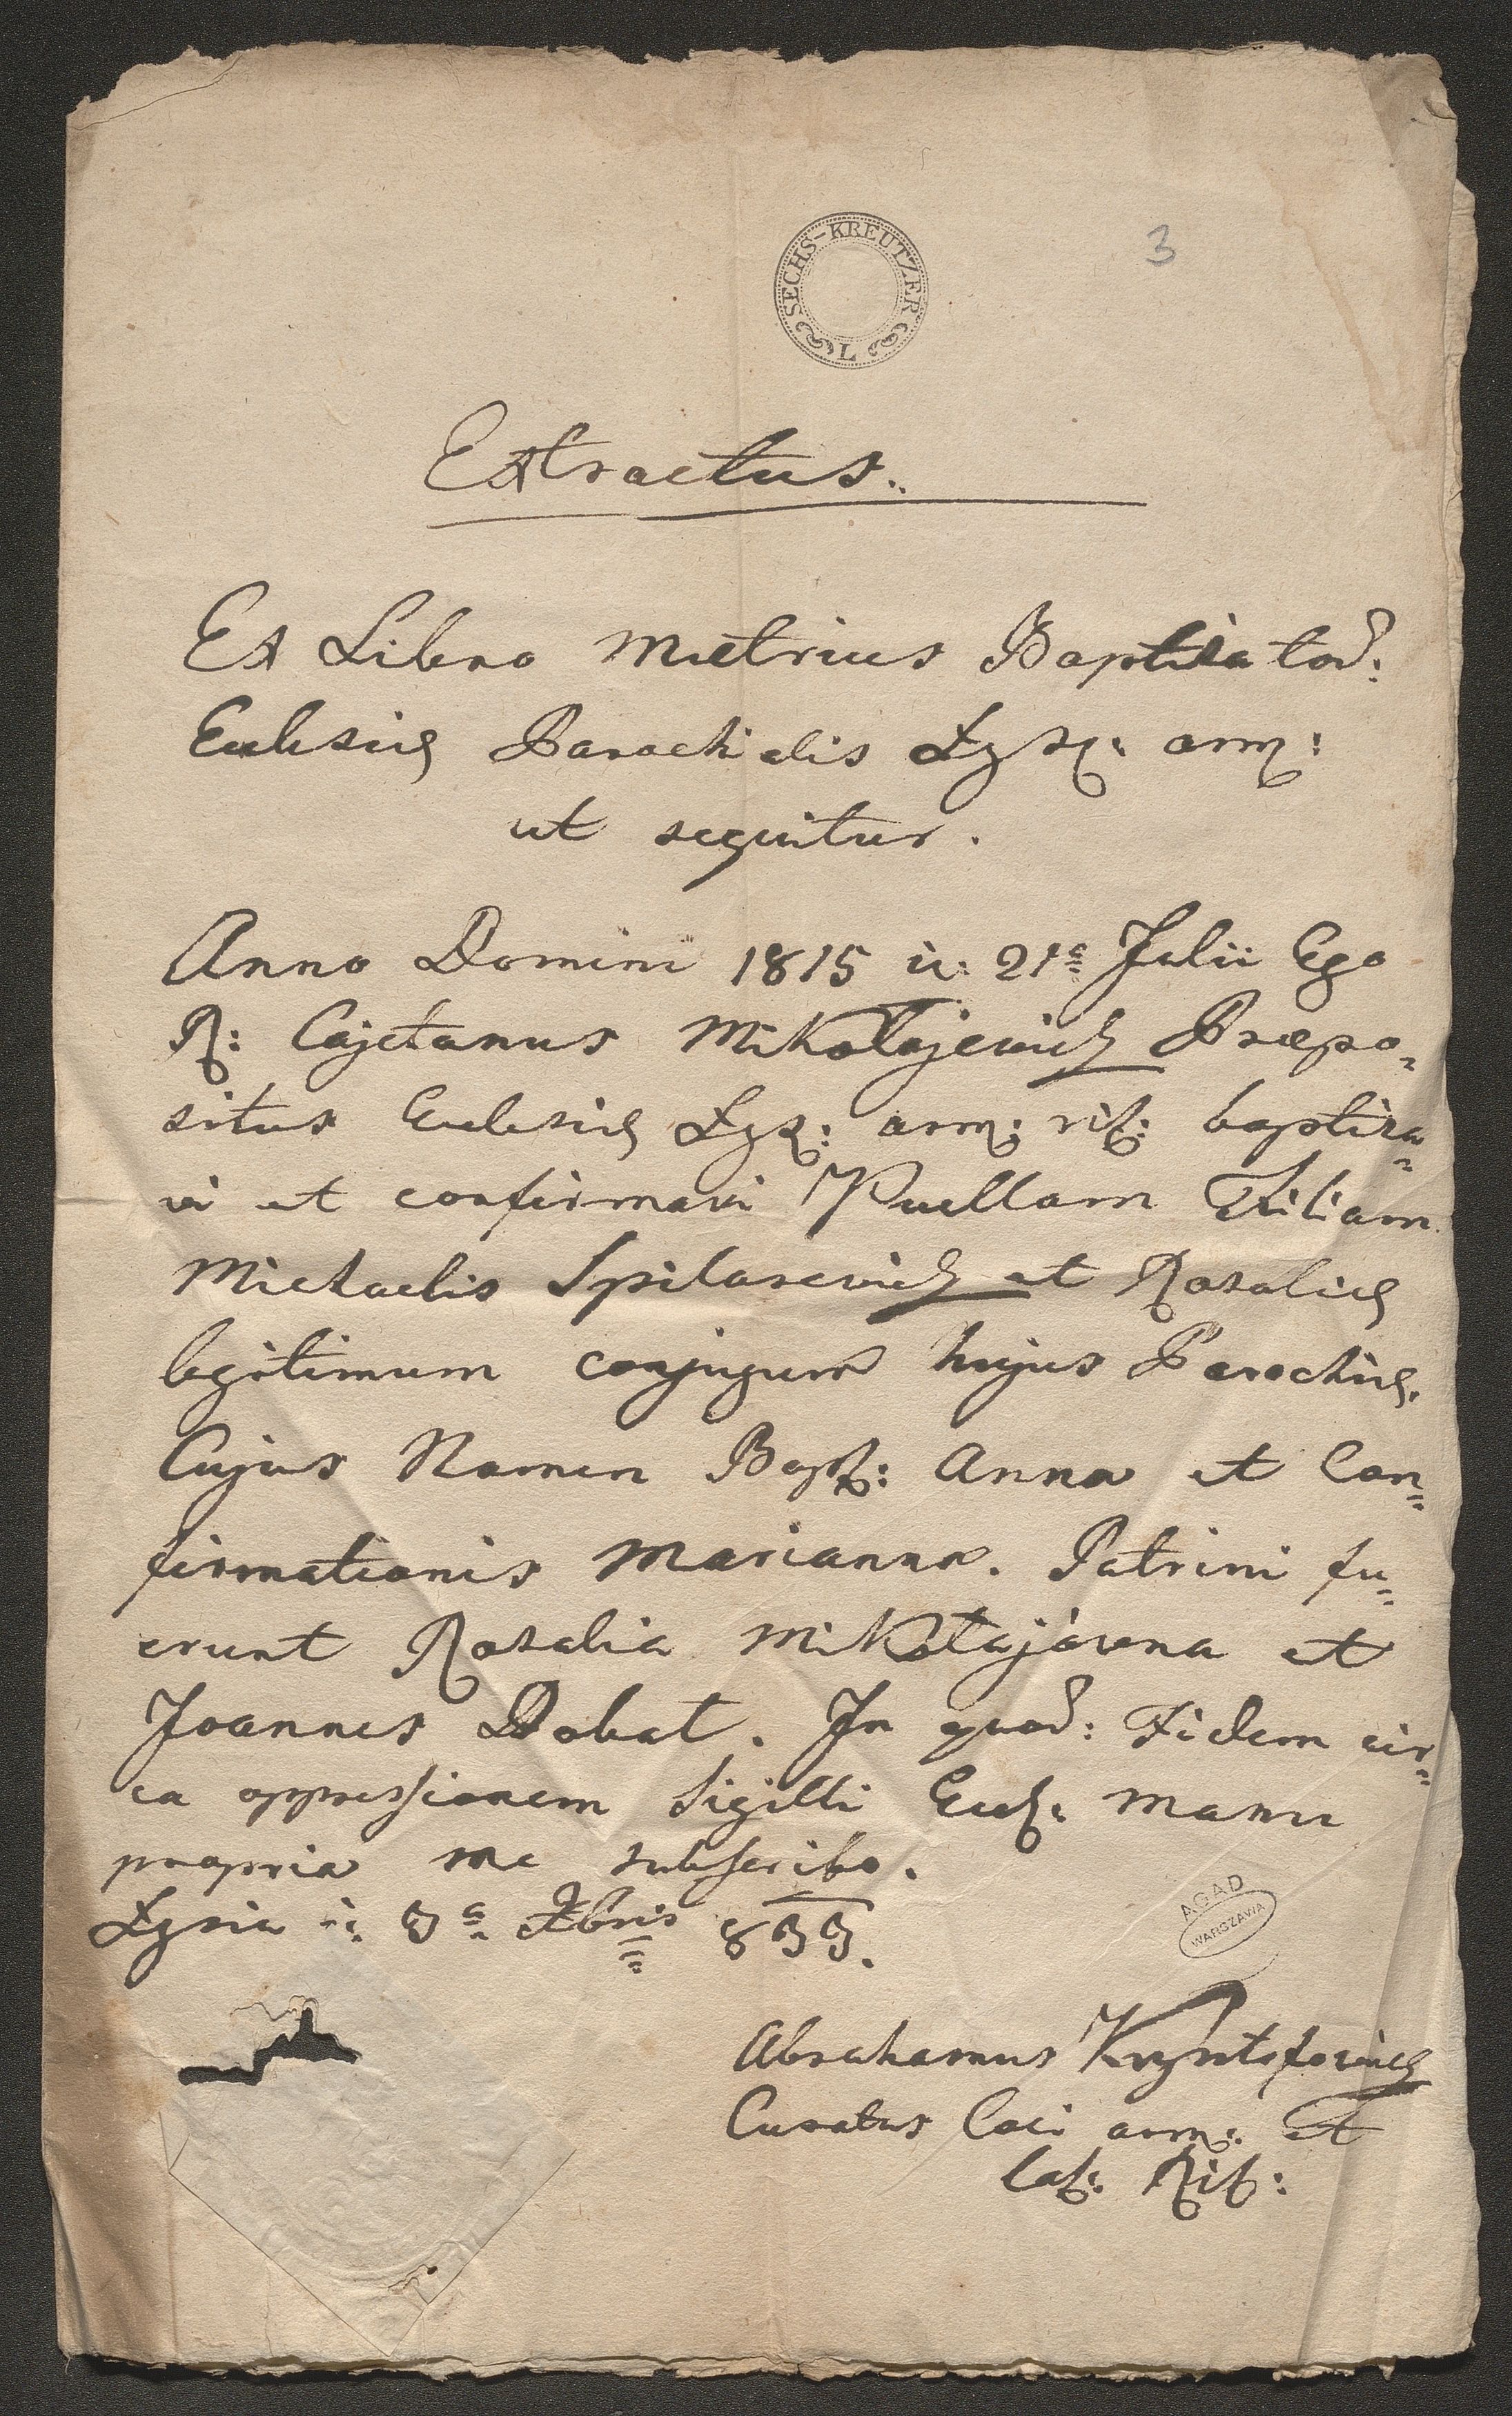 SECHS-KREUTZER
L
3
Extractus.
Ex Libro Metrices Baptisator:
Ecclesiæ Parochialis Lysc: arm:
ut sequitur.
Anno Domini 1815 d: 21ª Julii Ego
R: Cajetanus Mikołajewicz Præpo=
situs Ecclesiæ Lys: arm: rit: baptisa=
vi et confirmavi Puellam Filiam
Michaelis Spilarewicz et Rosaliæ
legitimum conjugum hujus Parochiæ.
Cujus Nomen Bapt: Anna et Con=
firmationis Marianna. Patrini fu=
erunt Rosalia Mikołajówna et
Joannes Dobat. In quor: Fidem cir=
ca oppressionem Sigilli Eccl: manu
propria me subscribo.
Lysia d: 3ª Xbris 833.
AGAD
WARSZAWA
Abrahamus Krzysztofowicz
Curatus Loci arm: et
Lat: Rit: